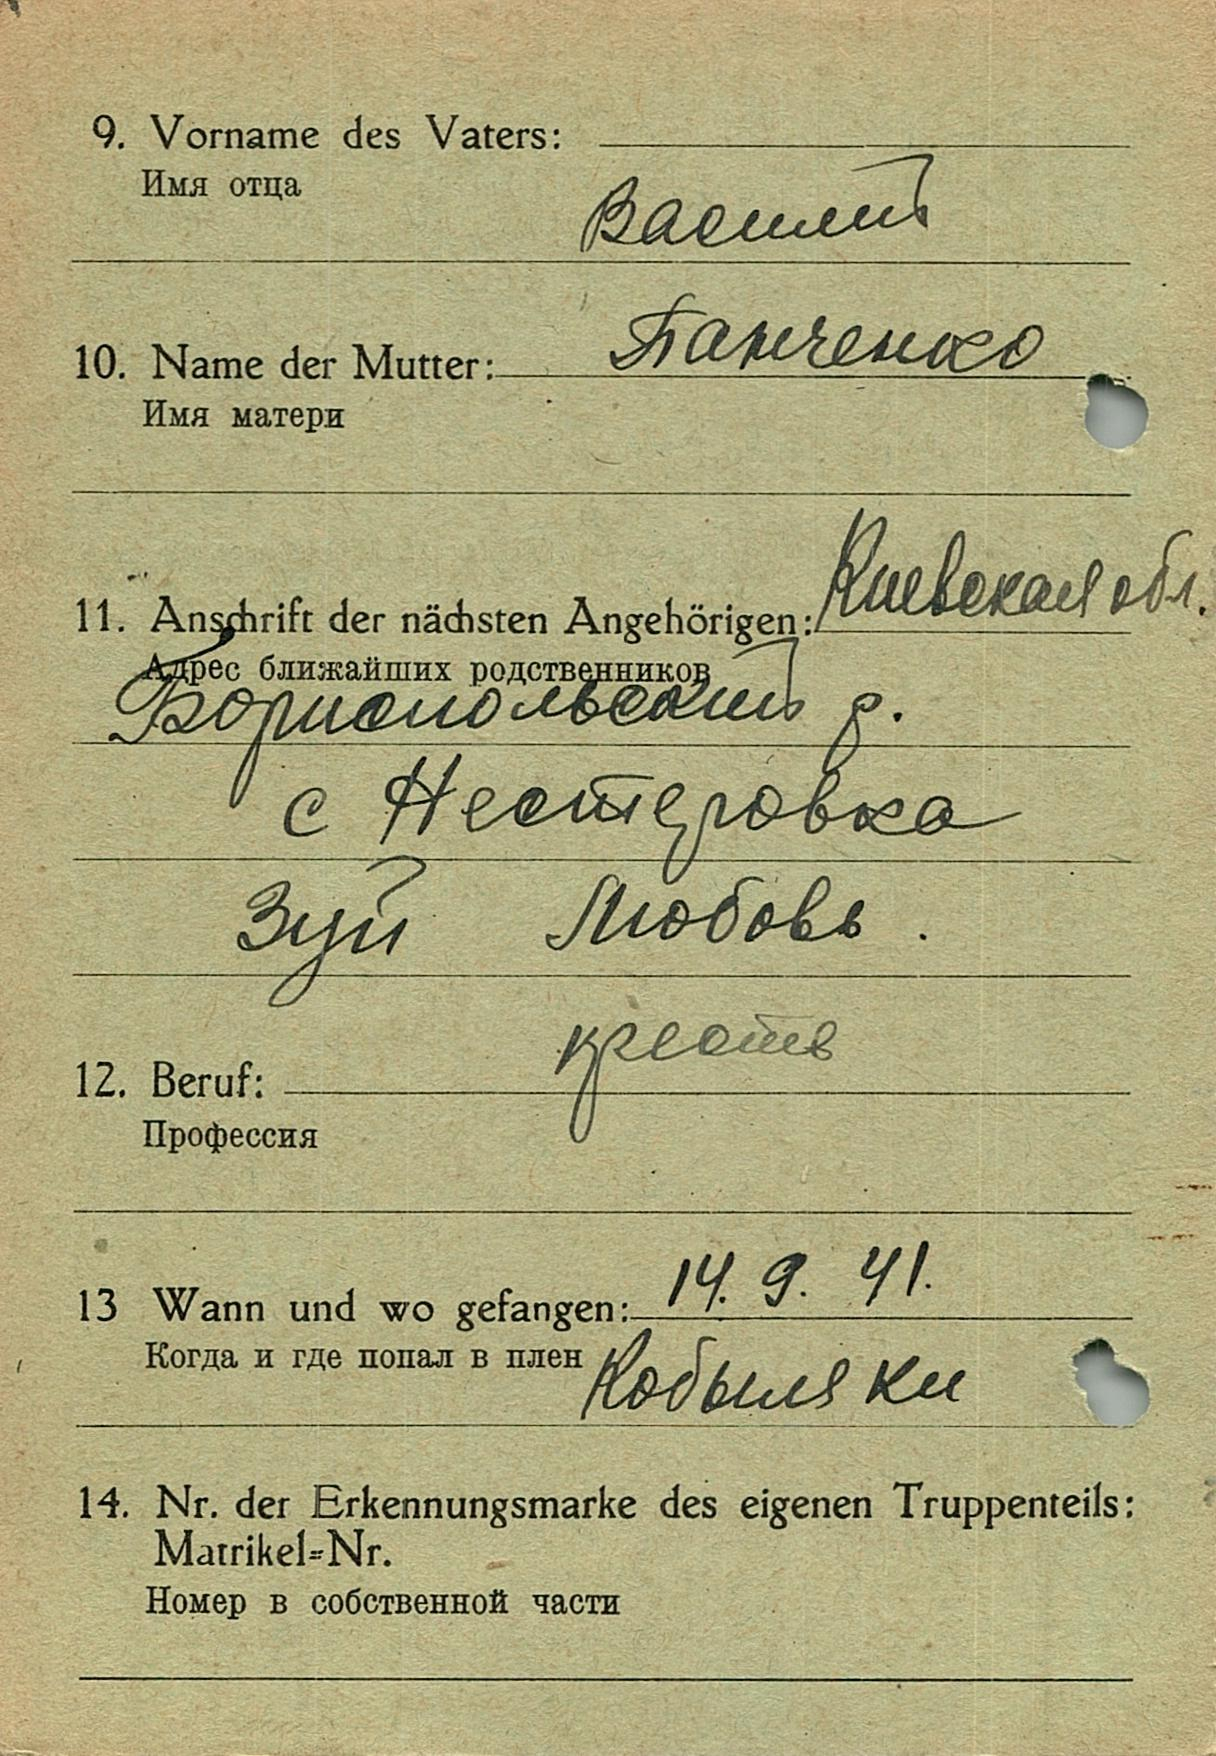 9. Vorname des Vaters:
Имя отца
Василий
10. Name der Mutter: Панченко
Имя матери
11. Anschrift der nächsten Angehörigen: Киевская обл.
Адрес ближайших родственников
Бориспольский р.
с Нестеровка
Зуй Любовь.
крест
12. Beruf:
Профессия
13 Wann und wo gefangen: 14. 9. 41.
Когда и где попал в плен Кобыляки
14. Nr. der Erkennungsmarke des eigenen Truppenteils:
Matrikel=Nr.
Номер в собственной части